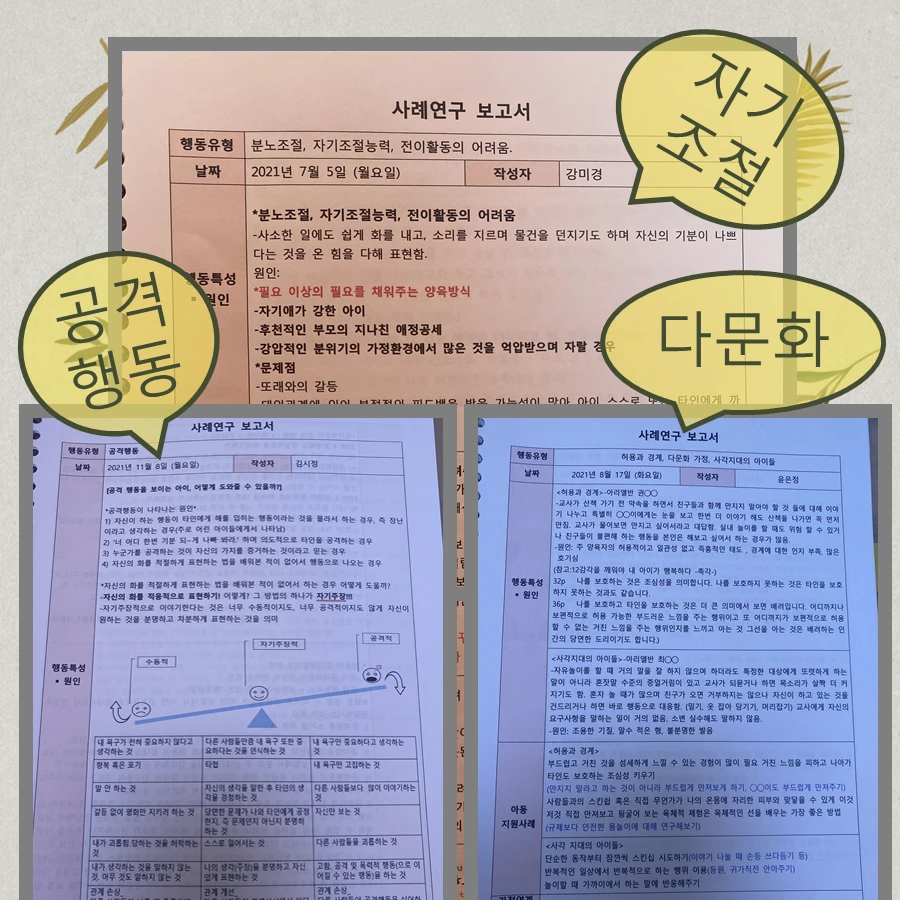 자기
조절
사례연구 보고서
행동유형 분노조절, 자기조절능력, 전이활동의 어려움.
날짜 2021년 7월 5일 (월요일) 작성자 강미경
*분노조절, 자기조절능력, 전이활동의 어려움
-사소한 일에도 쉽게 화를 내고, 소리를 지르며 물건을 던지기도 하며 자신의 기분이 나쁘
다는 것을 온 힘을 다해 표현함.
행동특성
▪ 원인
원인:
*필요 이상의 필요를 채워주는 양육방식
-자기애가 강한 아이
-후천적인 부모의 지나친 애정공세
-강압적인 분위기의 가정환경에서 많은 것을 억압받으며 자랄 경우
*문제점
-또래와의 갈등
공격
행동
다문화
사례연구 보고서
행동유형 공격행동
날짜 2021년 11월 8일 (월요일) 작성자 김시정
[공격 행동을 보이는 아이, 어떻게 도와줄 수 있을까?]
*공격행동이 나타나는 원인*
1) 자신이 하는 행동이 타인에게 해를 입히는 행동이라는 것을 몰라서 하는 경우, 즉 장난
이라고 생각하는 경우(주로 어린 아이들에게서 나타남)
2) '너 어디 한번 기분 되~게 나빠 봐라.' 하며 의도적으로 타인을 공격하는 경우
3) 누군가를 공격하는 것이 자신의 가치를 증거하는 것이라고 믿는 경우
4) 자신의 화를 적절하게 표현하는 법을 배워본 적이 없어서 행동으로 나오는 경우
*자신의 화를 적절하게 표현하는 법을 배워본 적이 없어서 하는 경우 어떻게 도울까?
-자신의 화를 적용적으로 표현하기! 어떻게? 그 방법의 하나가 자기주장!!!
-자기주장적으로 이야기한다는 것은 너무 수동적이지도, 너무 공격적이지도 않게 자신이
원하는 것을 분명하고 차분하게 표현하는 것을 의미
행동특성
▪ 원인
수동적 자기주장적 공격적
내 욕구가 전혀 중요하지 않다고 생각하는 것
다른 사람들만큼 내 욕구 또한 중요하다는 것을 인식하는 것
내 욕구만 중요하다고 생각하는 것
행복 혹은 포기 타협 내 욕구만 고집하는 것
말 안 하는 것
자신의 생각을 말한 후 타인의 생각을 경청하는 것
다른 사람들보다 많이 이야기하는 것
갈등 없이 평화만 지키려 하는 것
당면한 문제가 나와 타인에게 공정한지, 즉 문제인지 아닌지 분명히 하는 것
자신만 보는 것
내가 괴롭힘 당하는 것을 허락하는 것
스스로 일어서는 것
다른 사람들을 괴롭히는 것
내가 생각하는 것을 말하지 않는 것, 아무 것도 말하지 않는 것
나의 생각(주장)을 분명하고 자신 있게 표현하는 것
고함, 공격 및 폭력적 행동(으로 이어질 수 있는 행동)을 하는 것
관계 손상 관계 개선 관계 손상
사례연구 보고서
행동유형 허용과 경계, 다문화 가정, 사각지대의 아이들
날짜 2021년 8월 17일 (화요일) 작성자 윤은정
<허용과 경계>-아리엘반 권○○
-교사가 산책 가기 전 약속을 하면서 친구들과 함께 만지지 말아야 할 것 들에 대해 이야
기 나누고 특별히 ○○이에게는 눈을 보고 한번 더 이야기 해도 산책을 나가면 꼭 먼저
만짐. 교사가 물어보면 만지고 싶어서라고 대답함. 실내 놀이를 할 때도 위험 할 수 있거
나 친구들이 불편해 하는 행동을 본인은 해보고 싶어서 하는 경우가 많음.
-원인: 주 양육자의 허용적이고 일관성 없고 즉흥적인 태도 , 경계에 대한 인지 부족, 많은
호기심
(참고:12감각을 깨워야 내 아이가 행복하다 -촉각-)
32p 나를 보호하는 것은 조심성을 의미합니다. 나를 보호하지 못하는 것은 타인을 보호
하지 못하는 것과도 같습니다.
36p 나를 보호하고 타인을 보호하는 것은 더 큰 의미에서 보면 배려입니다. 어디까지나
보편적으로 허용 가능한 부드러운 느낌을 주는 행위이고 또 어디까지가 보편적으로 허용
할 수 없는 거친 느낌을 주는 행위인지를 느끼고 아는 것 그선을 아는 것은 배려하는 인
간의 당연한 도리이기도 합니다.)
행동특성
▪ 원인
<사각지대의 아이들>-아리엘반 최○○
-자유놀이를 할 때 거의 말을 잘 하지 않으며 하더라도 특정한 대상에게 또렷하게 하는
말이 아니라 혼잣말 수준의 중얼거림이 있고 교사가 되묻거나 하면 목소리가 살짝 더 커
지기도 함. 혼자 놀 때가 많으며 친구가 오면 거부하지는 않으나 자신이 하고 있는 것을
건드리거나 하면 바로 행동으로 대응함. (밀기, 옷 잡아 당기기, 머리잡기) 교사에게 자신의
요구사항을 말하는 일이 거의 없음. 소변 실수해도 말하지 않음.
-원인: 조용한 기질, 말수 적은 형, 불분명한 발음
아동
지원사례
<허용과 경계>
부드럽고 거친 것을 섬세하게 느낄 수 있는 경험이 많이 필요 거친 느낌을 피하고 나아가
타인도 보호하는 조심성 키우기
(만지지 말라고 하는 것이 아니라 부드럽게 만져보게 하기, ○○이도 부드럽게 만져주기)
사람들과의 스킨쉽 혹은 직접 무언가가 나의 온몸에 자리한 피부와 맞닿을 수 있게 이것
저것 직접 만져보고 뒹굴어 보는 육체적 체험은 육체적인 선을 배우는 가장 좋은 방법
(규제보다 안전한 몸놀이에 대해 연구해보기)
<사각 지대의 아이들>
단순한 동작부터 잠깐씩 스킨쉽 시도하기(이야기 나눌 때 손등 쓰다듬기 등)
반복적인 일상에서 반복적으로 하는 행위 이용(등원, 귀가직전 안아주기)
놀이할 때 가까이에서 하는 말에 반응해주기